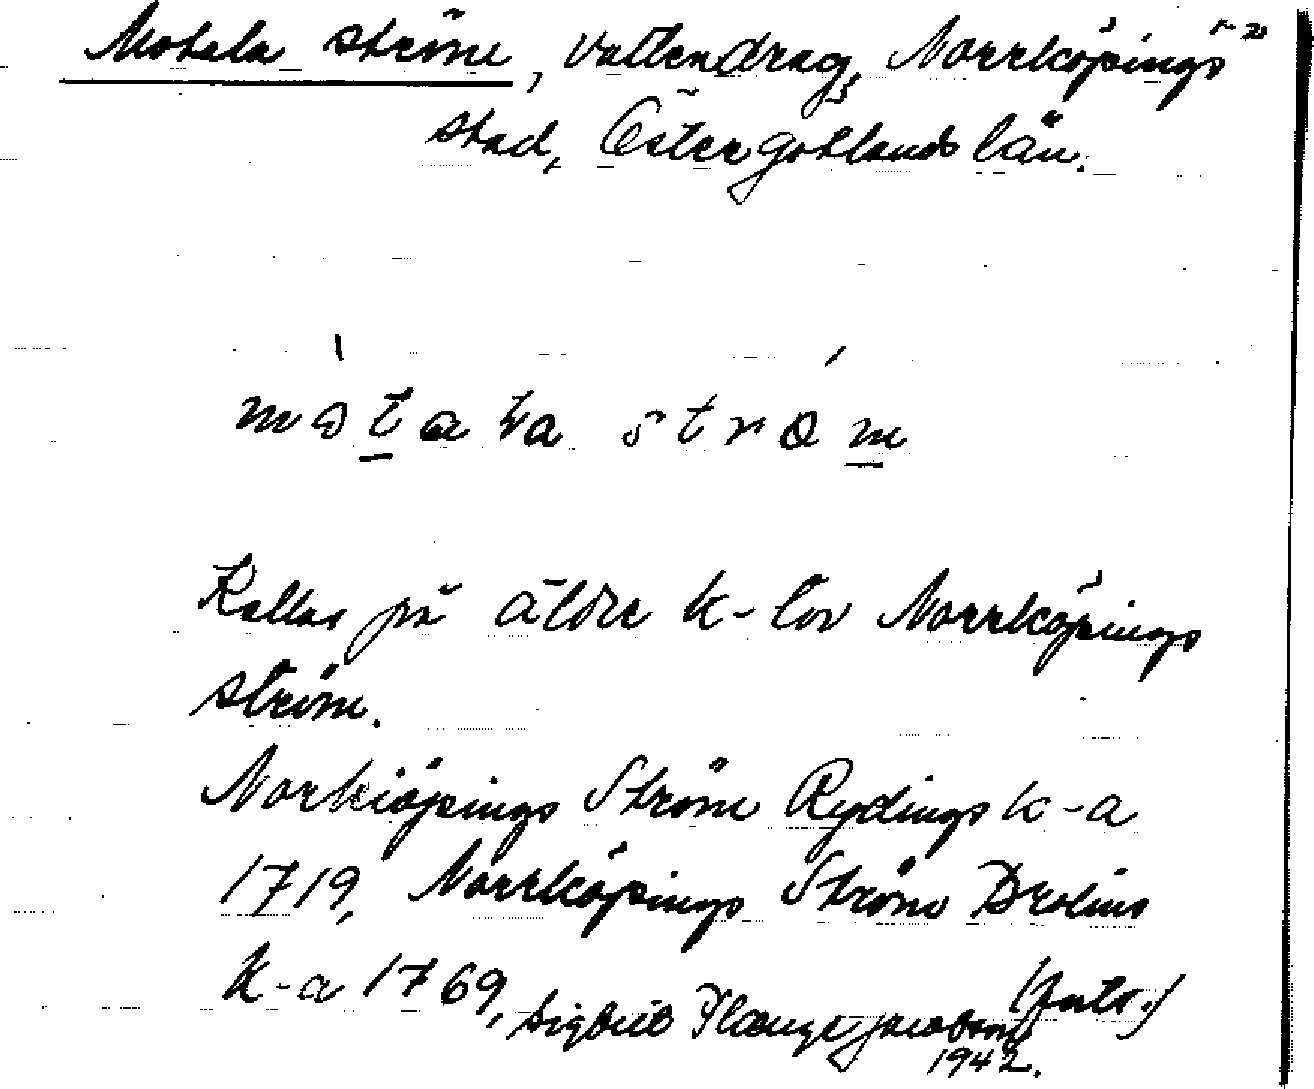 Motala ström, vattendrag, Norrköpings
stad, Östergötlands län.
Kallas på äldre k-tor Norrköpings
ström.
Norkiöpings Ström Rydings k-a
1719, Norrköpings Ström Brolins
k-a 1769,
(foto.)
Sigbrit Plænge Jacobson
1942.